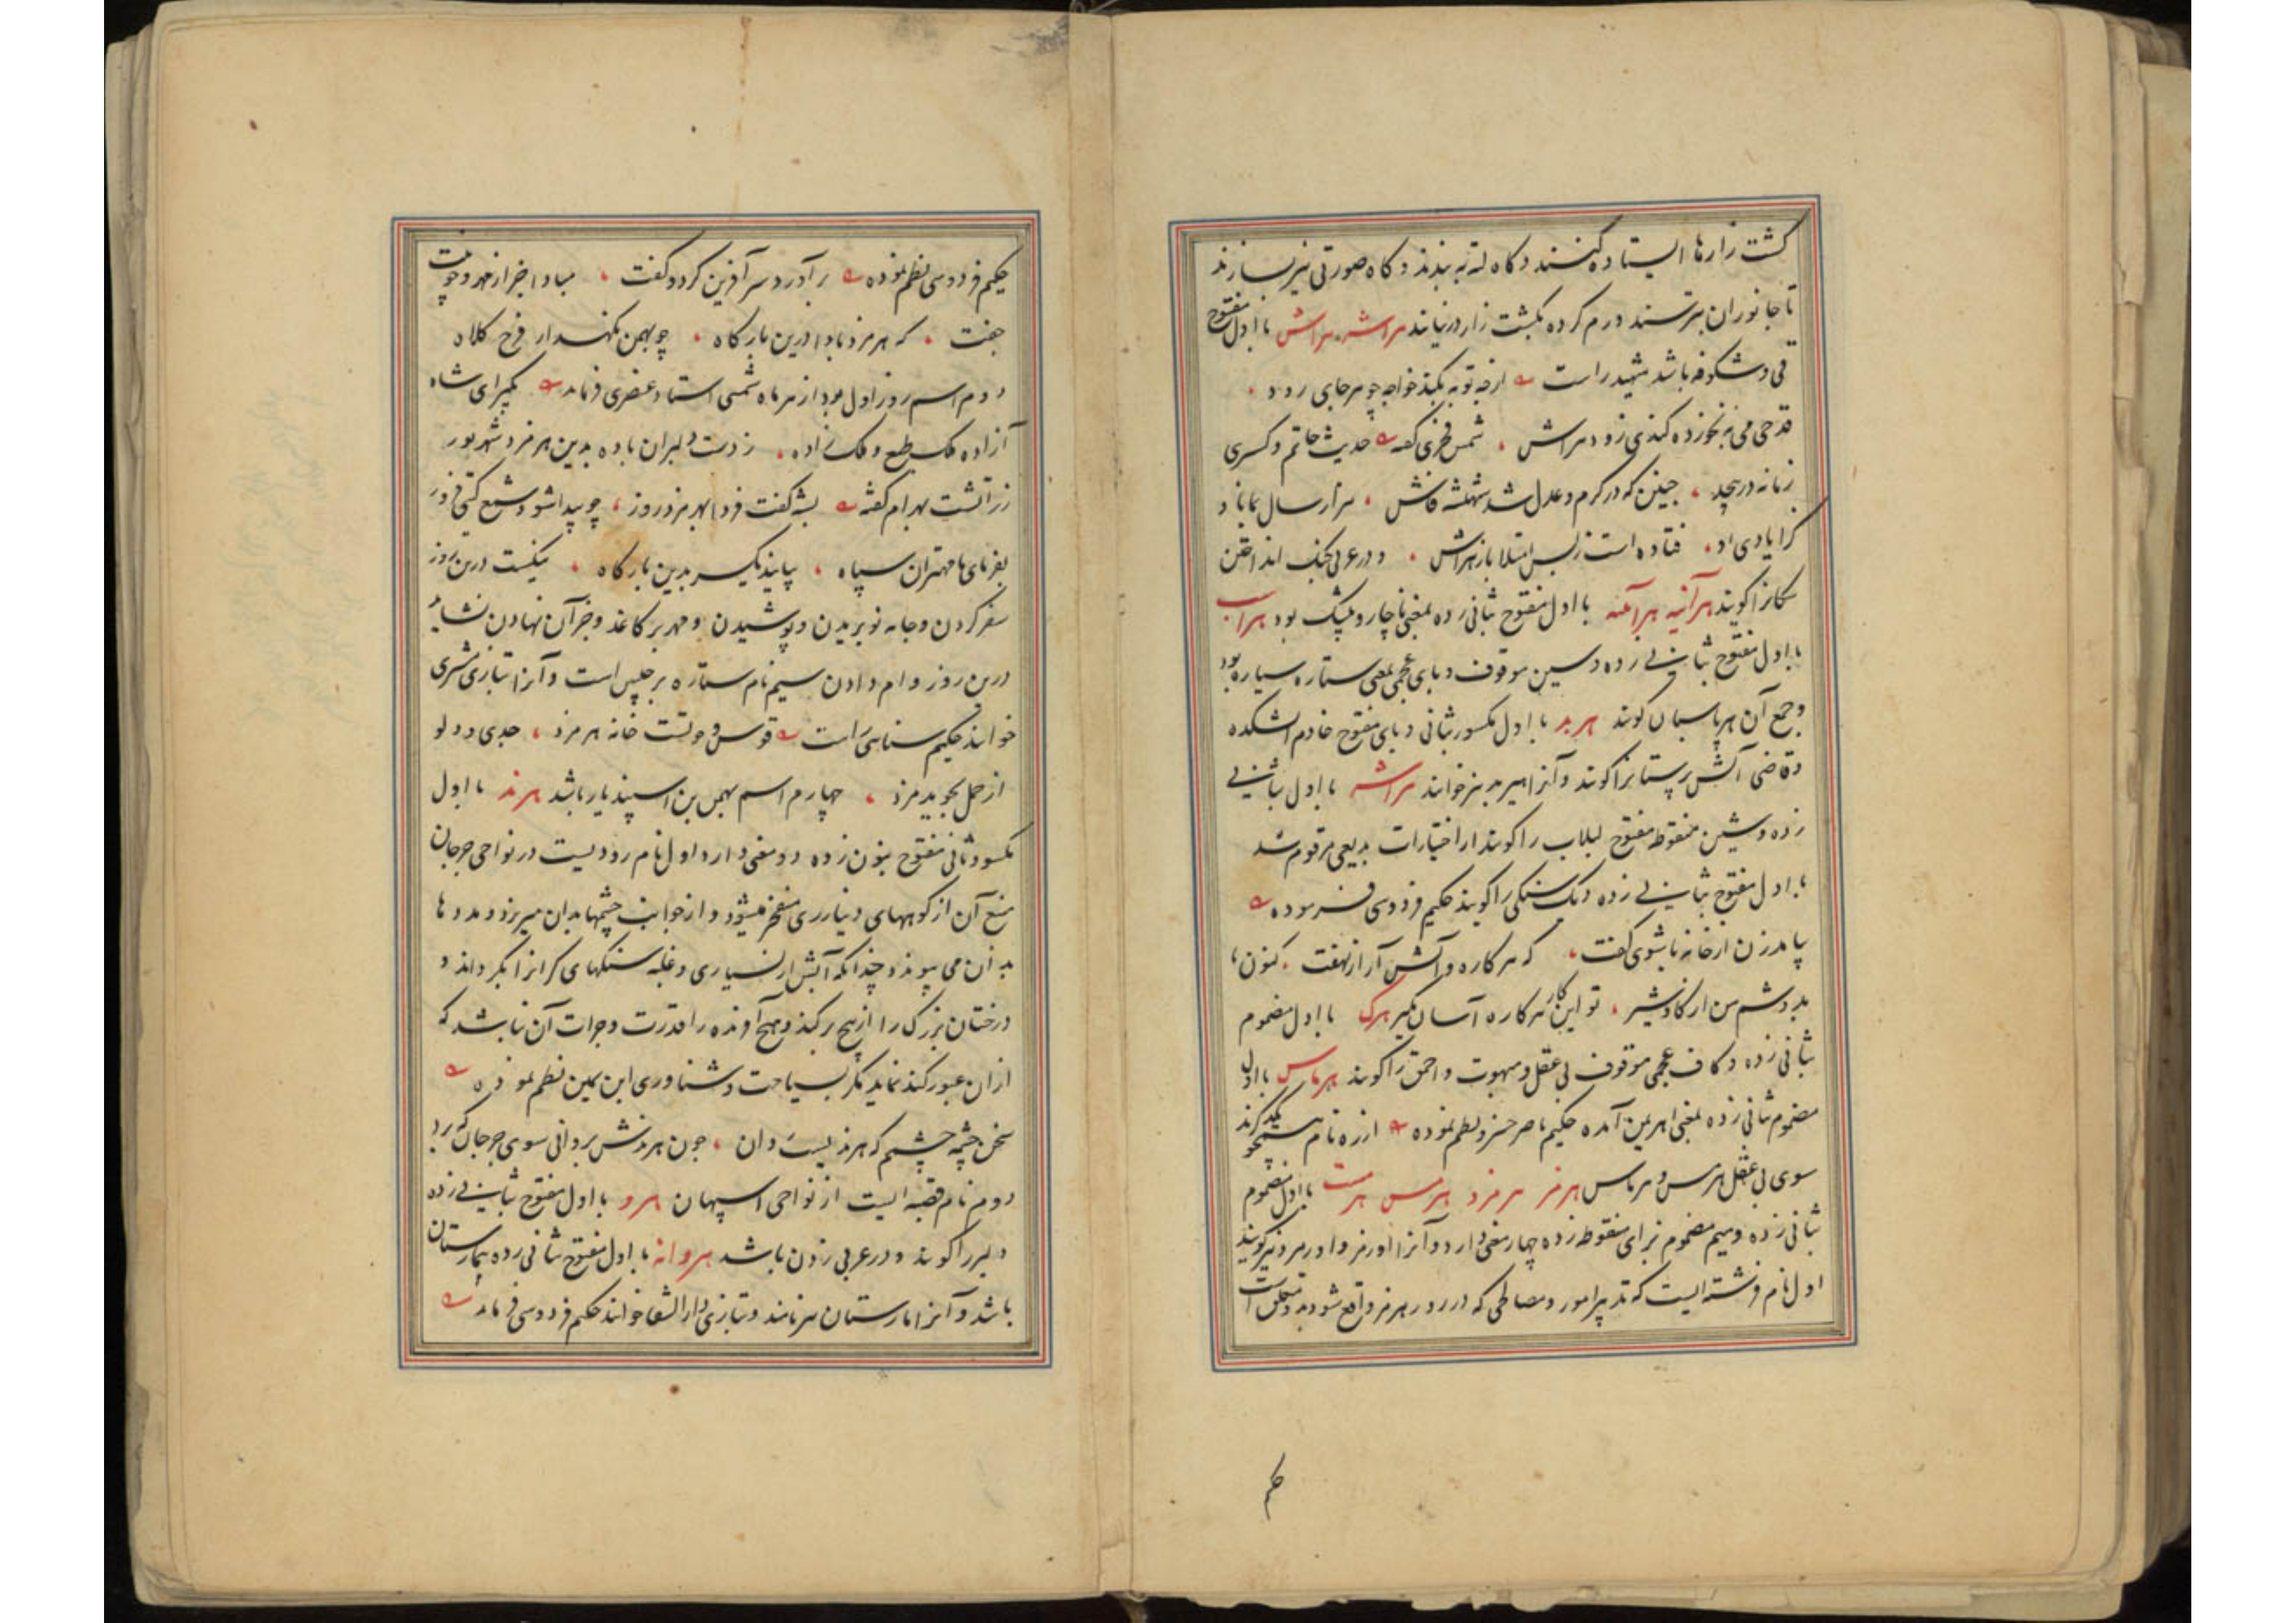 کشت زارها ایستاده کنند و کاه لته به بندند و کاه صورتی نیز سازند
تا جانوران بترسند و رم کرده بکشت زار در نیایند هراش هراش با اول مفتوح
قی و شکوفه باشد شهید راست از چه توبه نکند خواجه چو هر جای رود
قدحی می نخورده کندی زود هراش شمس فخری گفته حدیث حاتم و کسری
زمانه در پیچد چنین که در کرم و عدل شد شهنشه فاش هزار سال بماناد
فتاده است زبس امتلا بازهراش و در عربی سک انداختن
کانرا کویند هرآئینه هرآینه با اول مفتوح بثانی زده بمعنی ناچار و بیشک بود هراسب
با اول مفتوح بثانی زده و سین موقوف و بای عجمی بمعنی ستاره سیاره بود
و جمع آن هرپاسبان کویند هربد با اول مکسور بثانی و بای مفتوح خادم آتشکده
و قاضی آتش پرستانرا کویند و آنرا هیربد نیز خوانند هراشه با اول بثانی
زده و شین منقوط مفتوح لبلاب را کویند از اختیارات بدیعی مرقوم شد
با اول مفتوح بثانی زده دیک سنکی را کویند حکیم فردوسی فرموده
بیامد زن از خانه با شوی گفت که هرکاره و آتش آر از نهفت کنون
بدوشم من از کاو شیر تو این کار هرکاره آسان مکیر هرک با اول مضموم
بثانی زده و کاف عجمی موقوف بی عقل و مبهوت و احمق را کویند هرماس با اول
مضموم ثانی زده بمعنی اهریمن آمده حکیم ناصر خسرو نظم نموده از ره نام
سوی بی عقل هرمس و هرماس هرمز هرمزد هرمس هرمست با اول مضموم
بثانی زده و میم مضموم بزای منقوط زده چهار معنی دارد و آنرا اورمزد و اورمزد نیز کویند
اول نام فرشته ایست که تدبیر امور و مصالحی که در روز هرمز واقع شود بدو متعلق است
حکیم
حکیم فردوسی نظم نموده برآورد سر آفرین کرد و گفت مبادا جز از مهر و خوبیت
جفت که هرمزد بادا درین بارکاه چو بهمن نکهدار فرخ کلاه
دوم اسم روز اول بود از هر ماه شمسی استاد عنصری فرماید بکیر ای شاه
آزاده ملک طبع و ملک زاده ز دست دلبران باده بدین هرمزد و شهریور
زراتشت بهرام کفته بشه گفت فردا بهرمزد روز چو پیدا شود شمع کتی فروز
بفرمای تا مهتران سپاه بیایند یکسر بدین بارکاه نیکست درین روز
سفر کردن و جامه نو بریدن و پوشیدن و مهر بر کاغذ و جز آن نهادن نشاید
درین روز وام دادن سیم نام ستاره برجیس است و آنرا بتازی مشتری
خوانند حکیم سنائی راست قوس و حوتست خانه هرمزد جدی و دلو
از حمل بجوید مزد چهارم اسم بهمن بن اسپندیار باشد هرند با اول
مکسور و ثانی مفتوح بنون زده دو معنی دارد اول نام رودیست در نواحی جرجان
منبع آن از کوههای دیناری منفجر میشود و از جوانب چشمها بدان میریزد و مدد ها
بد آن می پیوندد چندانکه آبش از بسیاری و غلبه سنکهای کرانرا بکرداند و
درختان بزرک را از بیخ برکند و هیچ آفریده را قدرت و جرات آن نباشد که
ازان عبور کند نماید مکر بسیاحت و شناوری ابن یمین نظم نموده
سخن چشمه چشمم که هرند یست روان چون هرندش بر دانی سوی جرجان که برد
دوم نام قصبه ایست از نواحی اسپهان هرو با اول مفتوح بثانی زده
دلیر را کویند و در عربی زدن باشد هروانه با اول مفتوح ثانی زده بیمارستان
باشد و آنرا مارستان نیز نامند و بتازی دارالشفا خوانند حکیم فردوسی فرماید